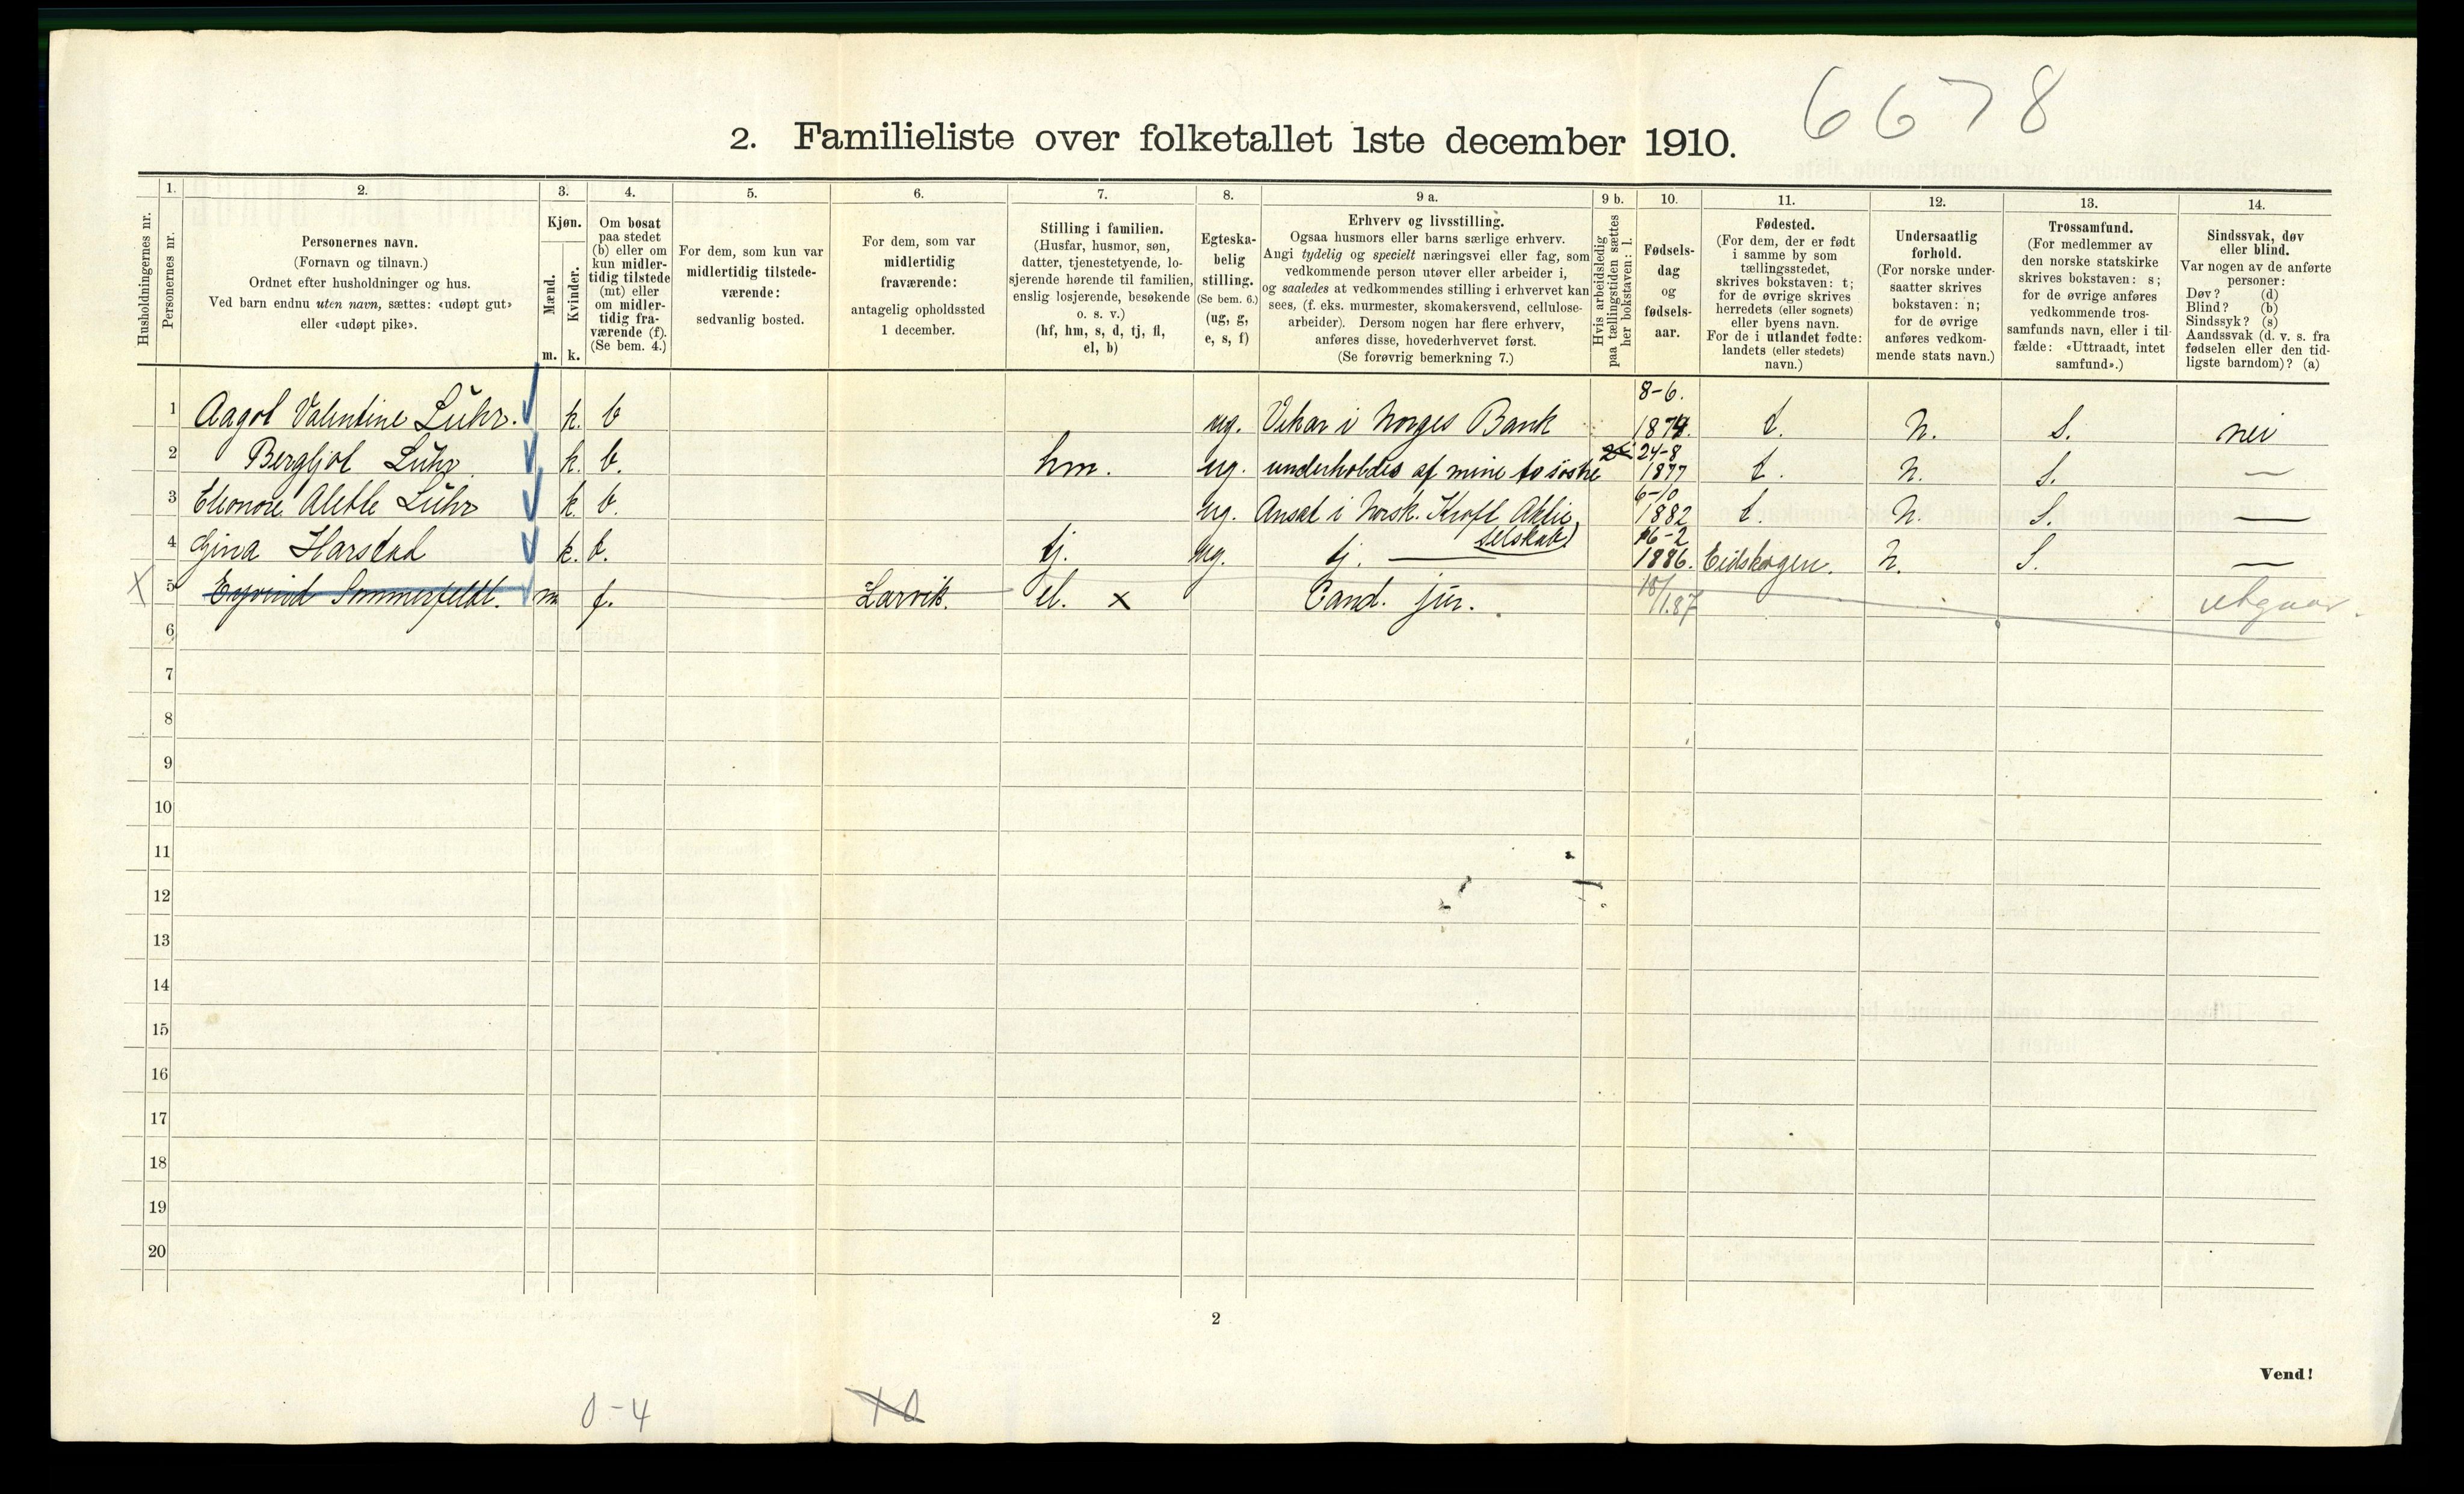 6678
2. Familieliste over folketallet 1ste december 1910.
Husholdningernes nr.
1.
Personernes nr.
2.
Personernes navn.
(Fornavn og tilnavn.)
Ordnet efter husholdninger og hus.
Ved barn endnu uten navn, sættes: «udøpt gut»
eller «udøpt pike».
3.
Kjøn.
Mænd.
Kvinder.
m. k.
4.
Om bosat
paa stedet
(b) eller om
kun midler-
tidig tilstede
(mt) eller
om midler-
tidig fra-
værende (f).
(Se bem. 4.)
5.
For dem, som kun var
midlertidig tilstede-
værende:
sedvanlig bosted.
6.
For dem, som var
midlertidig
fraværende:
antagelig opholdssted
1 december.
7.
Stilling i familien.
(Husfar, husmor, søn,
datter, tjenestetyende, lo-
sjerende hørende til familien,
enslig losjerende, besøkende
o. s. v.)
(hf, hm, s, d, tj, fl,
el, b)
8.
Egteska-
belig
stilling.
(Se bem. 6.)
(ug, g,
e, s, f)
9 a.
Erhverv og livsstilling.
Ogsaa husmors eller barns særlige erhverv.
Angi tydelig og specielt næringsvei eller fag, som
vedkommende person utøver eller arbeider i,
og saaledes at vedkommendes stilling i erhvervet kan
sees, (f. eks. murmester, skomakersvend, cellulose-
arbeider). Dersom nogen har flere erhverv,
anføres disse, hovederhvervet først.
(Se forøvrig bemerkning 7.)
9 b.
Hvis arbeidsledig
paa tællingstiden sættes
her bokstaven: l.
10.
Fødsels-
dag
og
fødsels-
aar.
11.
Fødested.
(For dem, der er født
i samme by som
tællingsstedet,
skrives bokstaven: t;
for de øvrige skrives
herredets (eller sognets)
eller byens navn.
For de i utlandet fødte:
landets (eller stedets)
navn.)
12.
Undersaatlig
forhold.
(For norske under-
saatter skrives
bokstaven: n;
for de øvrige
anføres vedkom-
mende stats navn.)
13.
Trossamfund.
(For medlemmer av
den norske statskirke
skrives bokstaven: s;
for de øvrige anføres
vedkommende tros-
samfunds navn, eller i til-
fælde: «Uttraadt, intet
samfund».)
14.
Sindssvak, døv
eller blind.
Var nogen av de anførte
personer:
Døv? (d)
Blind? (b)
Sindssyk? (s)
Aandssvak (d. v. s. fra
fødselen eller den tid-
ligste barndom)? (a)
1 Aagot Valentine Lühr. k. b ug. Vikar i Norges Bank 8-6. 1874. t. n. S. nei
2 Bergljot Lühr k. b. hm. ug. underholdes af mine to søstre 24-8 1877 t. n. S. —
3 Eleonore Alette Lühr k. b. ug. Ansat i Norsk. Kraft Aktie selskab) 6-10 1882 t. n. S. —
4 Gina Harstad k. b. tj. ug. tj. — 16-2 1886. Eidskogen. n. S. —
X 5 Eyvind Sommerfeldt. m f. Larvik. el. x Cand. jur. 18/1.87 utgaar.
6
7
8
9
10
11
12
13
14
15
16
17
18
19
20
2
Vend!
0-4